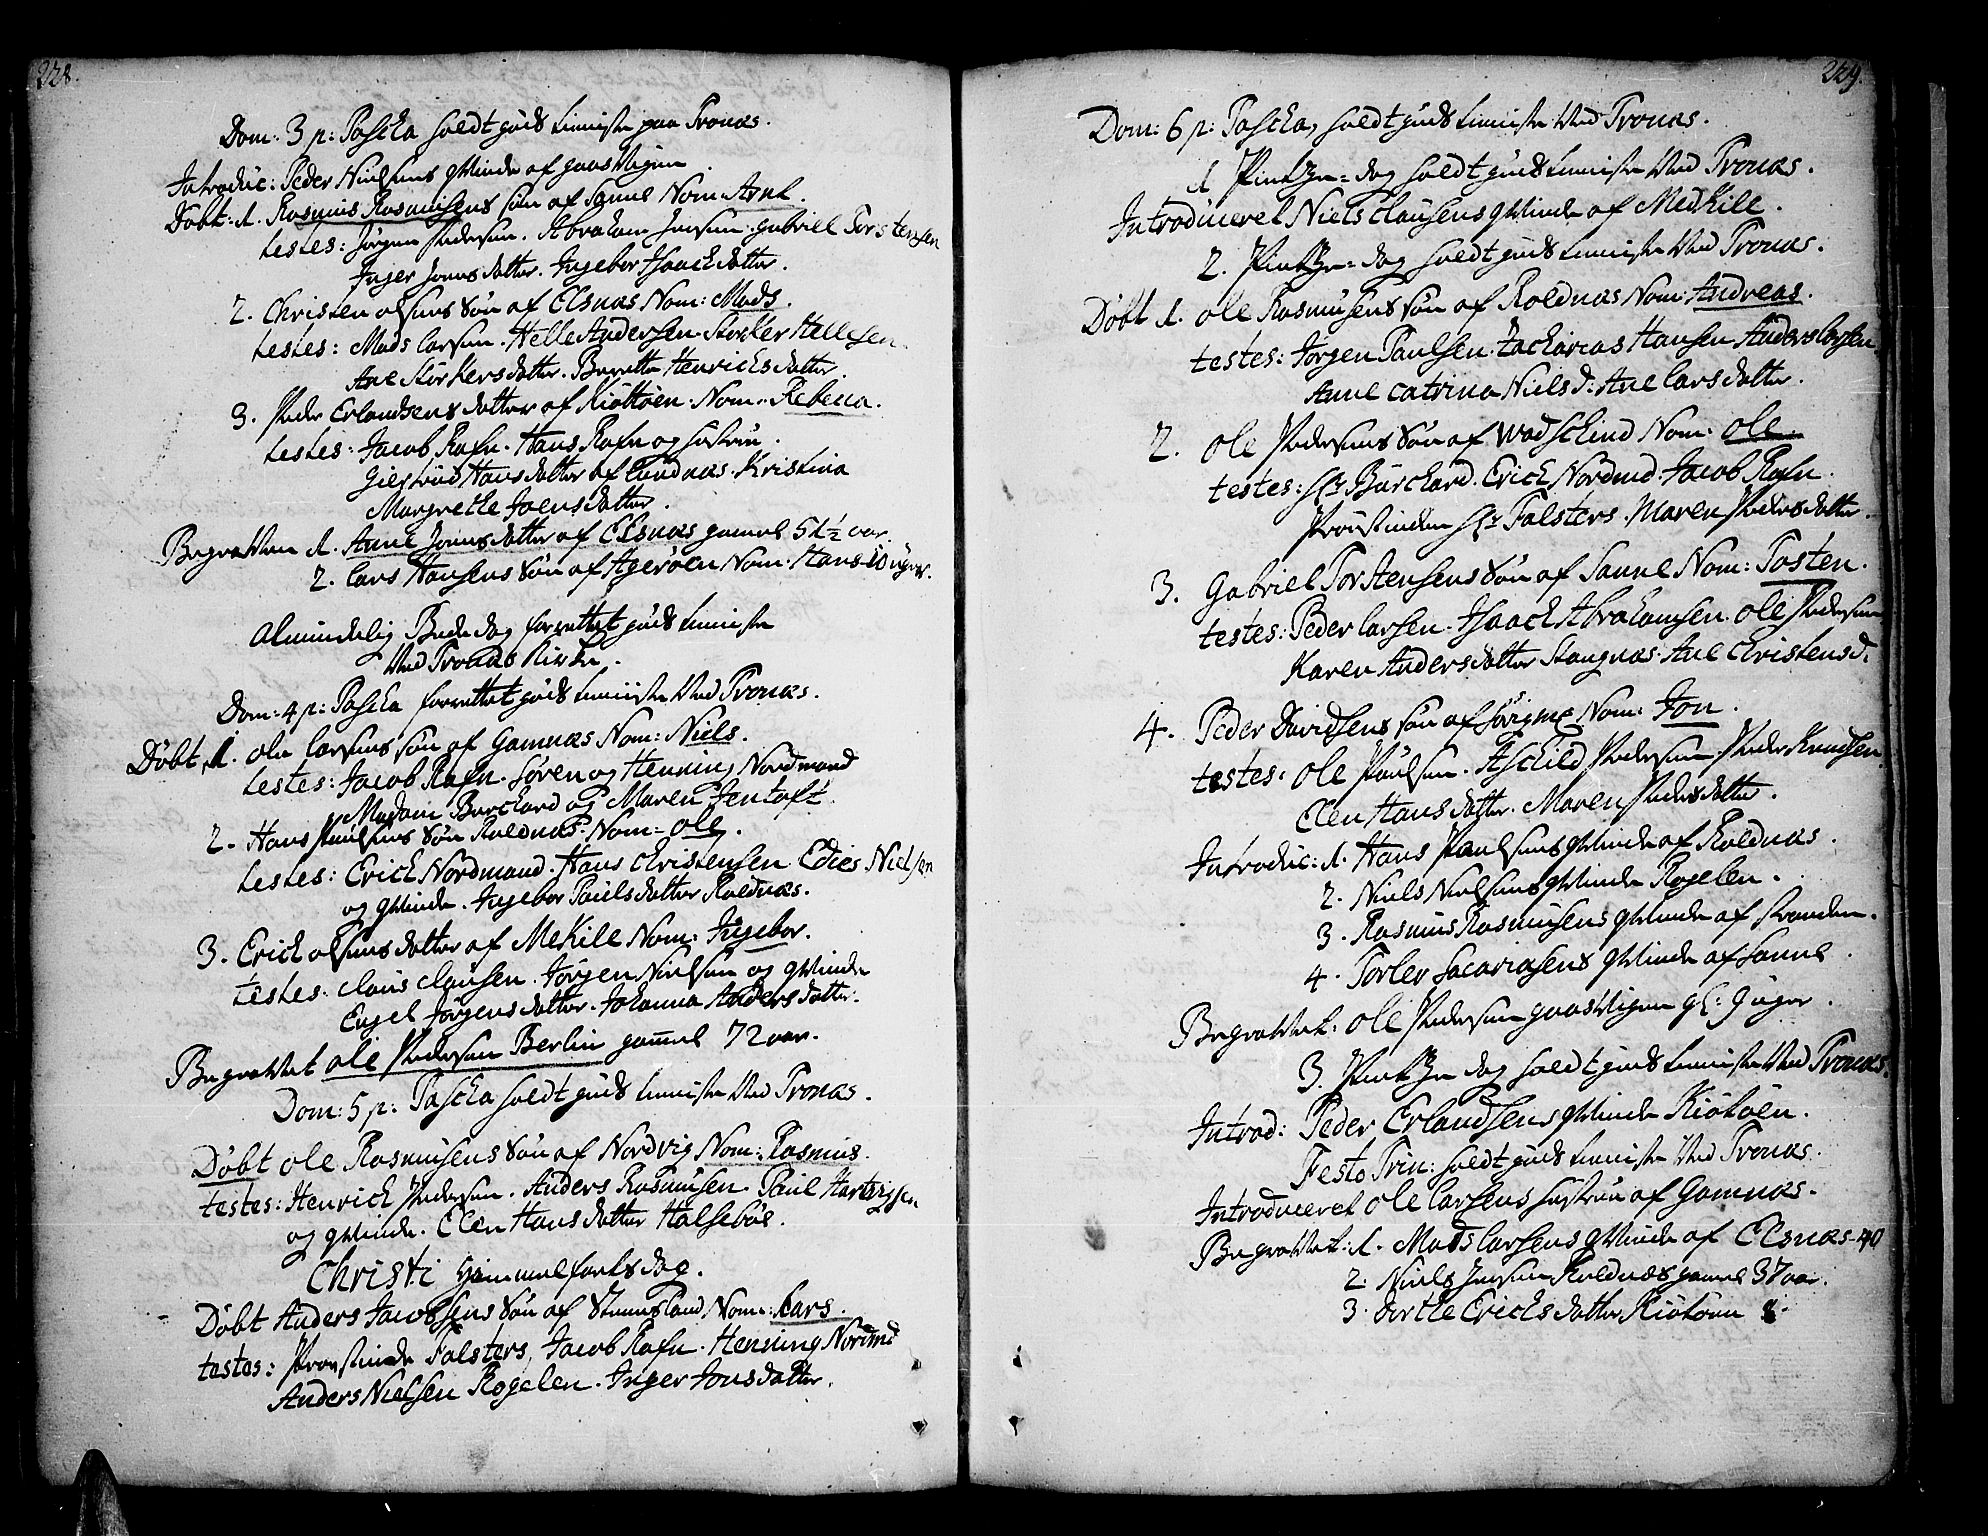 228.
Dom: 3 p: Pascha holdt guds tienniste paa Tronæs.
Introduc: Peder Nielsens qvinde af gaasvigen
Döbt: 1. Rasmus Rasmusens sön af Sanne Nom Arnt.
testes: Jörgen Pedersen. Abraham Jensen. gabriel Torstensen
Inger Jonsdatter. Ingebor Isaachdatter.
2. Christen olsens sön af Elsnæs Nom: Mads.
testes: Mads larsen. Helle Andersen. Storker Hellesen.
Ane Storkersdatter. Berette Henrichsdatter.
3. Peder Erlandsens datter af Kiöttöen. Nom: Rebecca.
testes: Jacob Rafn. Hans Rafn og hustru.
Giertrud Hansdatter af Sundnæs. Kristina
Margrethe Joensdatter.
Begravben 1. Anne Jonsdatter af Elsnæs gamel 51½ aar.
2. lars Hansens sön af Ageröen Nom. Hans 10 uger.
almindelig Bededag forrettet guds tienniste
ved Tronæs Kirke.
Dom: 4 p: Pascha forrettet guds tienniste ved Tronæs.
Döbt, 1. ole larsens sön af Gamnæs Nom: Niels.
testes: Jacob Rafn. Sören og Henning Nordmand
Madam Burchard og Maren Jentoft.
2. Hans Paulsens sön Roldnæs. Nom: ole.
testes: Erich Nordmand. Hans christensen Edies Nielsen
og qvinde. Ingebor Paulsdatter Roldnæs.
3. Erich olsens datter af MeKile Nom: Ingebor.
testes: claus clausen. Jörgen Nielsen og qvinde
Engel Jörgensdatter. Johanna Andersdatter.
Begravbet ole Pedersen Berlin gamel 72 aar.
Dom: 5 p: Pascha holdt guds tienniste ved Tronæs.
Döbt ole Rasmusens sön af Nordvig Nom: Rasmus.
testes: Henrich Pedersen. Anders Rasmusen. Paul Hartvigsen
og qvinde. Elen Hansdatter Halseböe.
Christi Himmelfarts dag.
Döbt Anders Jacobsens sön af Stennsland Nom: Lars.
testes: Provstinde Falsters, Jacob Rafn. Henning Nordmd
Anders Nielsen Rogelen. Inger Jonsdatter.
229.
Dom: 6 p: Pascha, holdt guds tienniste ved Tronæs.
1 Pintze=dag holdt guds tienniste ved Tronæs.
Introduceret Niels clausens qvinde af Medkile.
2. Pintze=dag holdt guds tienniste ved Tronæs.
Döbt 1. ole Rasmusens sön af Roldnæs Nom: Andreas.
testes: Jörgen Paulsen. Zacharias Hansen Anders larsen.
Anne catrina Niels d: Ane larsdatter.
2. ole Pedersens sön af Wadschind Nom: ole.
testes: Hr Burchard. Erich Nordmd. Jacob Rafn.
Provstinden Hr Falsters. Maren Pedersdatter.
3. Gabriel Torstensens sön af Sanne Nom: Tosten.
testes: Peder larsen. Isaach Abrahamsen. ole Pedersen
Karen Andersdatter Stangnæs. Ane Christensd.
4. Peder Davidsens sön af Nom: Jon.
testes: ole Paulsen. Aschild Pedersen. Peder Knudsen.
Elen Hansdatter. Maren Pedersdatter.
Introduc: 1. Hans Paulsens qvinde af Roldnæs.
2. Niels Nielsens qvinde Rogelen.
3. Rasmus Rasmusens qvinde af stranden.
4. Torler sacariasens qvinde af Sanne.
Begravbet: ole Pedersen gaasvigen gl: 9 uger.
3. Pintze dag holdt guds tienniste ved Tronæs.
Introd: Peder Erlandsens qvinde Kiötöen.
Festo Trin: holdt guds tienniste ved Tronæs.
Introduceret ole larsens hustru af Gamnæs.
Begravbet: 1. Mads larsens qvinde af Elsnæs 40
2. Niels Jensen Roldnæs gamel 37 aar.
3. dorthe Erichsdatter Kiötöen